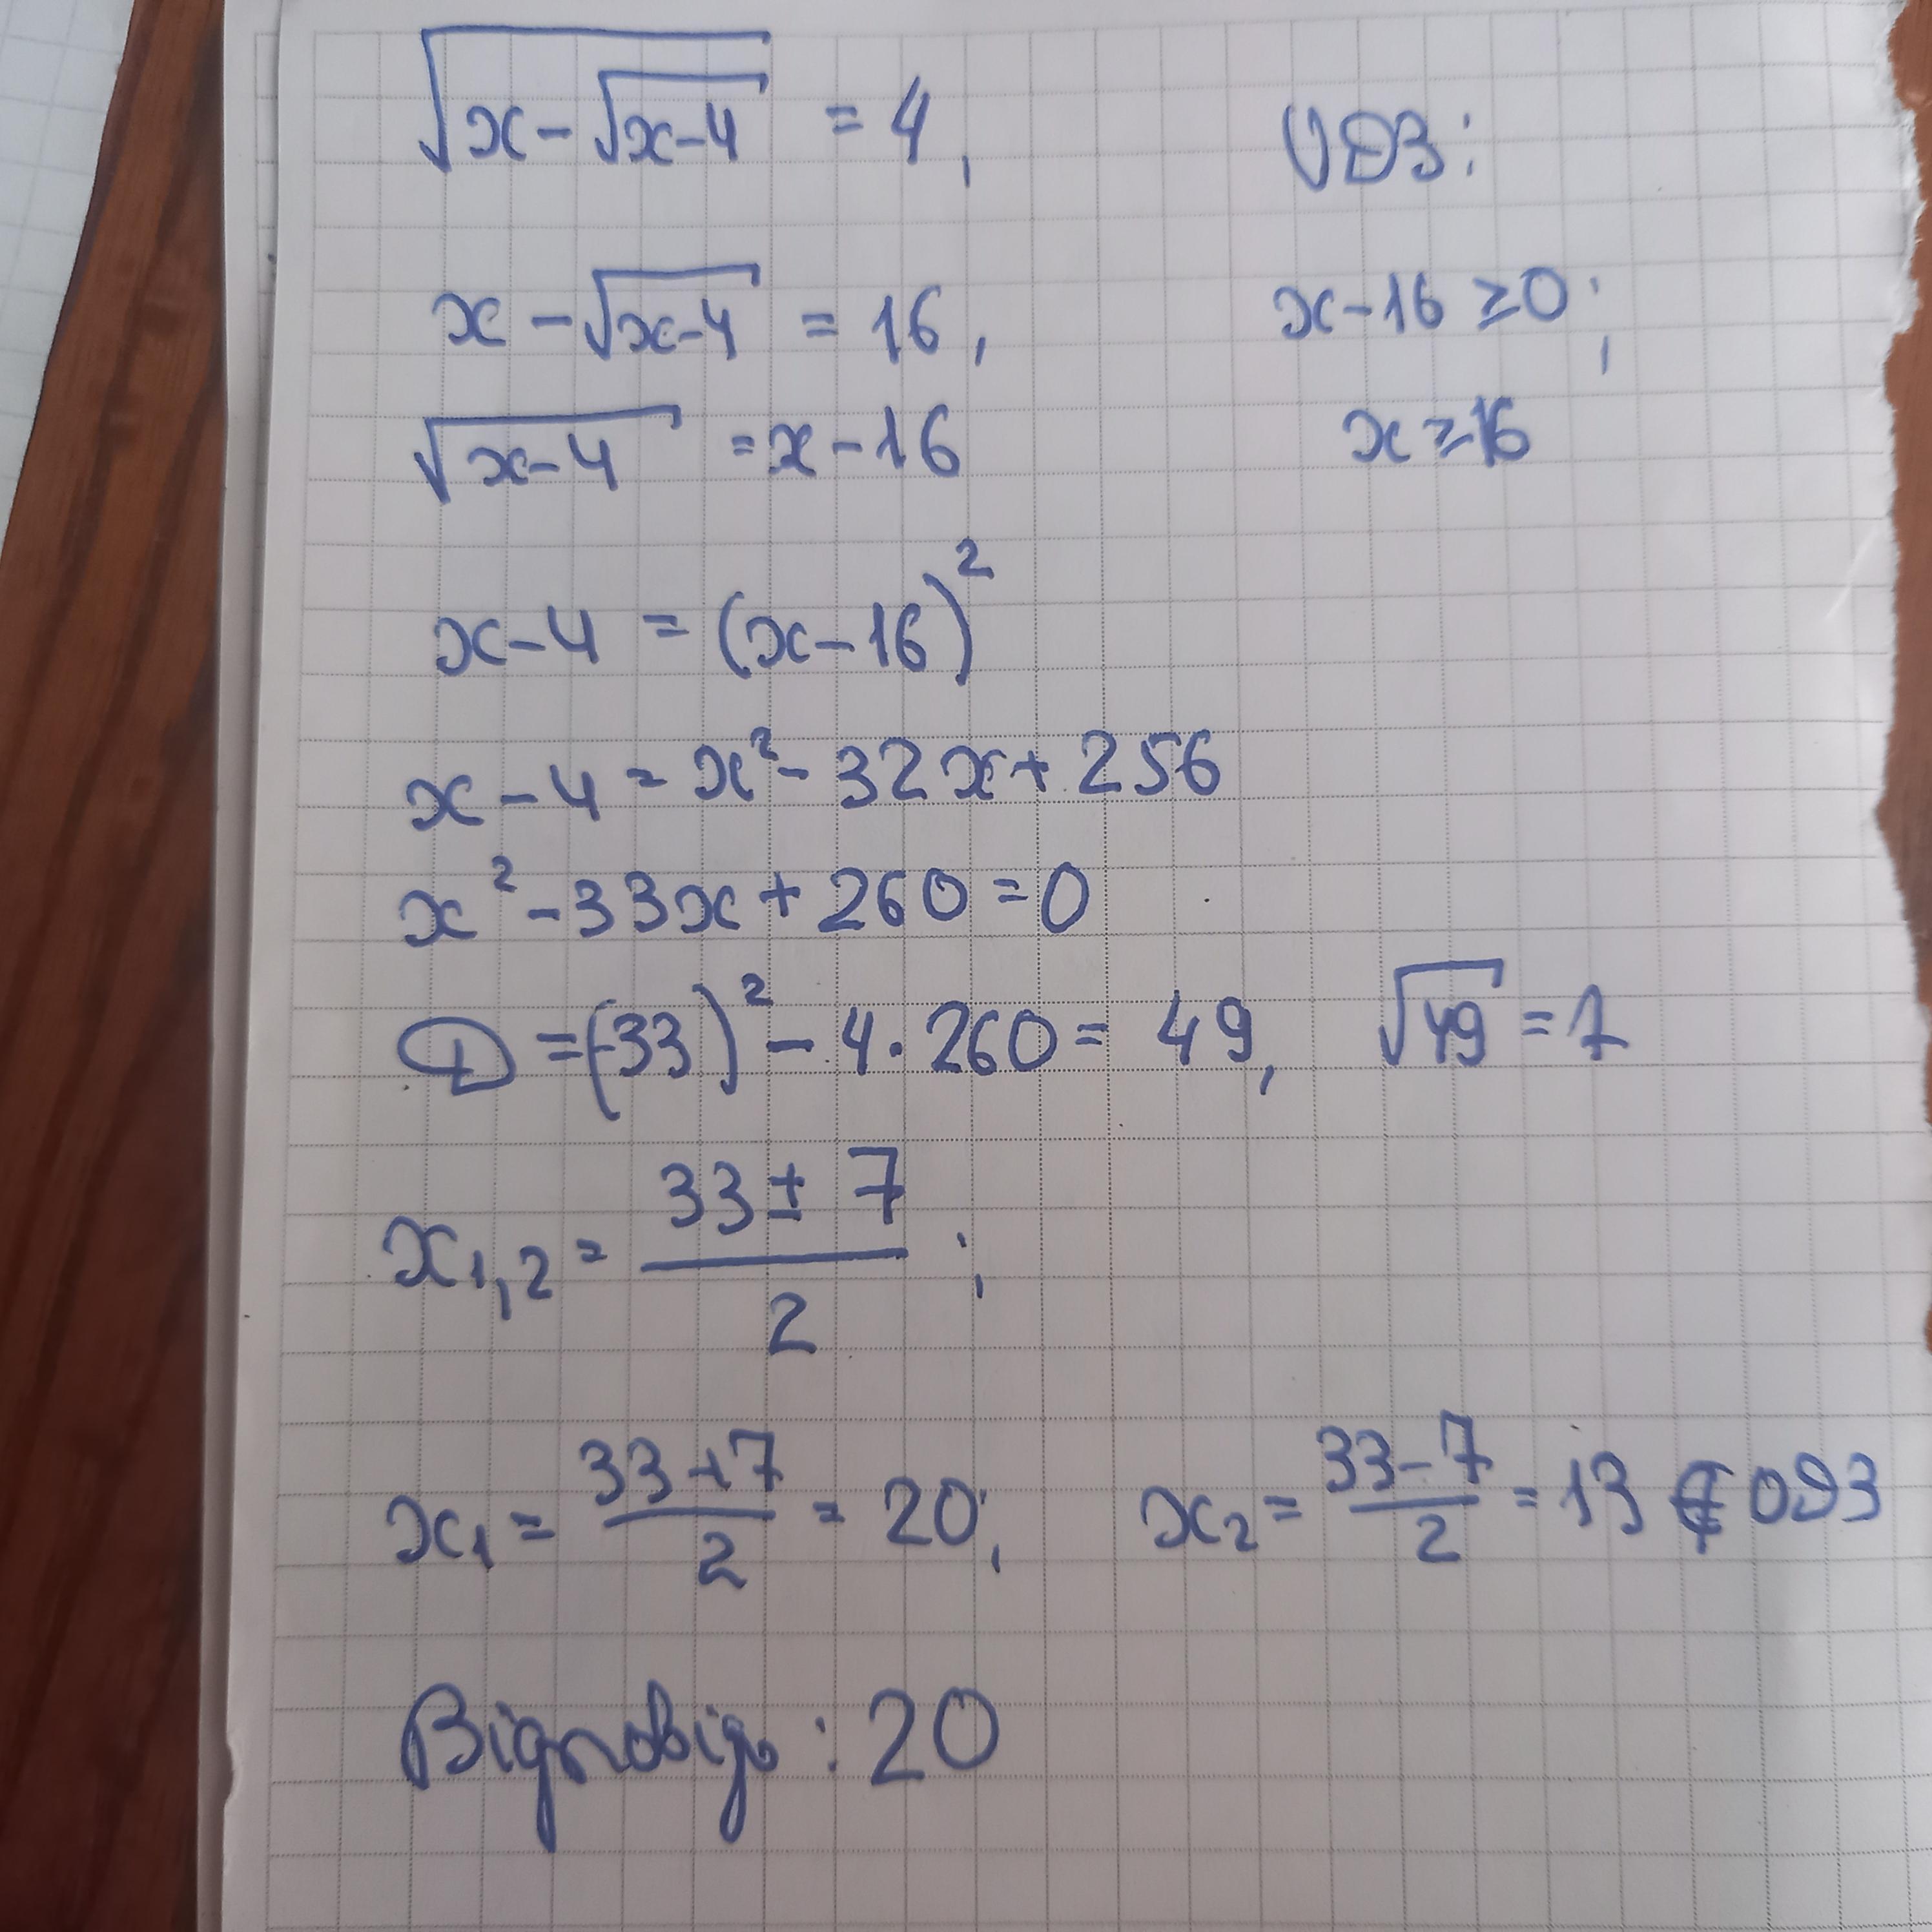 √(x-√(x-4)) = 4, ОДЗ:
x-√(x-4) = 16, x-16 ≥ 0;
√(x-4) = x-16 x ≥ 16
x-4 = (x-16)²
x-4 = x²-32x+256
x²-33x+260=0
D =(-33)²-4·260= 49, √49 = 7
x1,2 = (33 ± 7)/2 ;
x1 = (33+7)/2 = 20; x2 = (33-7)/2 = 13 ∉ ОДЗ
Відповідь: 20